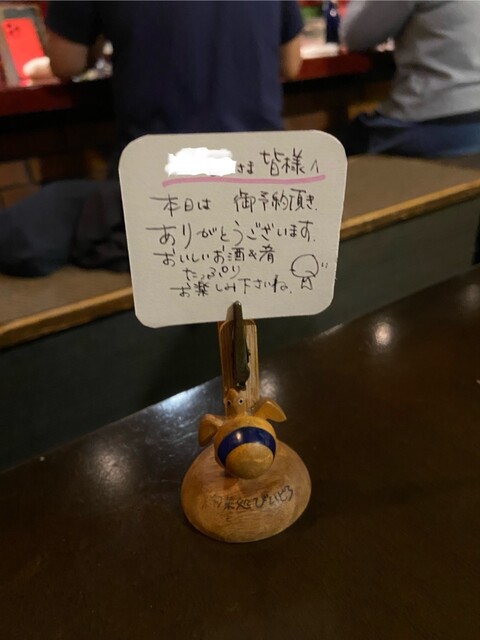 さま 皆様へ
本日は 御予約頂き
ありがとうございます。
おいしいお酒を肴
たっぷり
お楽しみ下さいね。
菜処びいどろ